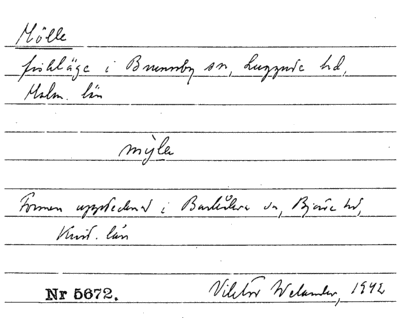 Mölle
fiskläge i Brunnby sn, Luggude hd,
Malm. län
mỳlə
Formen upptecknad i Barkåkra sn, Bjäre hd,
Krist. län
Nr 5672. Viktor Welander, 1942